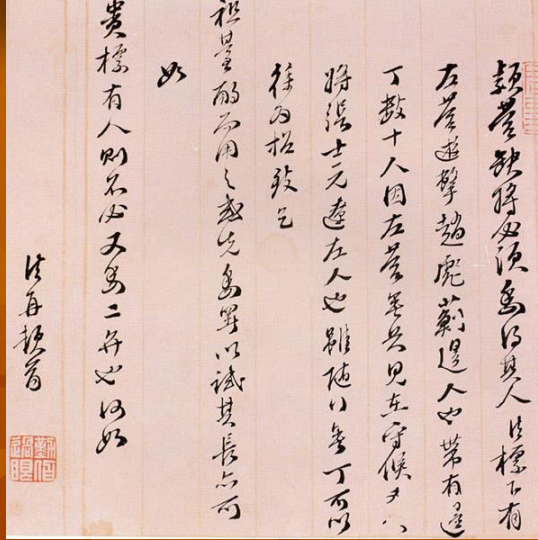 營缺將必須得其人法標下有
左營遊擊趙彪薊邊人也帶有邊
丁數十人因左營無兵見在守候又
將張士元遼左人也雖隨行無丁可以
往為招致乞
祖臺酌而用之或先為署以試其長亦可
如
貴標有人則不必又為二弁也何如
法再頓首